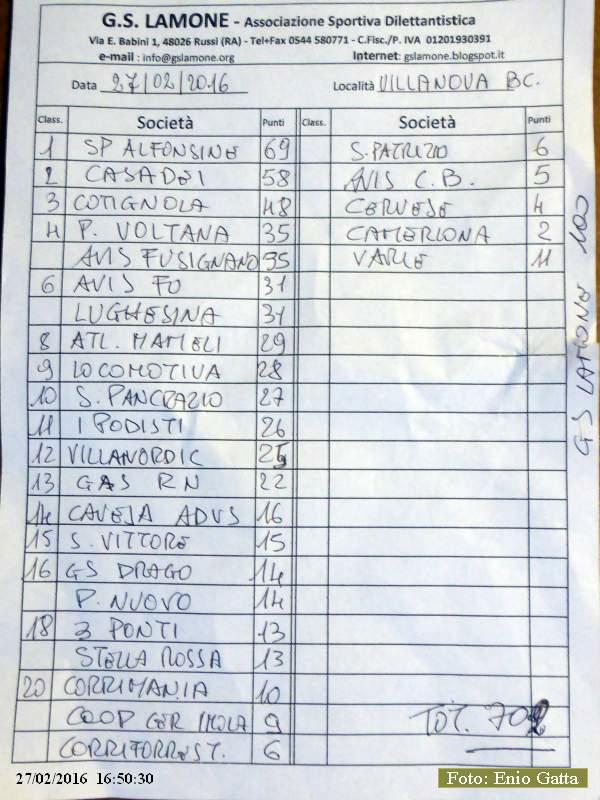 G.S. LAMONE - Associazione Sportiva Dilettantistica
Via E. Babini 1, 48026 Russi (RA) - Tel+Fax 0544 580771 - C.Fisc./P. IVA 01201930391
e-mail : info@gslamone.org Internet: gslamone.blogspot.it
Data 27/02/2016 Località VILLANOVA BC.
Class. Società Punti Class. Società Punti
1 SP ALFONSINE 69 S. PATRIZIO 6
2 CASADEI 58 AVIS C.B. 5
3 COTIGNOLA 48 CERVESE 4
4 P. VOLTANA 35 CAMERLONA 2
AVIS FUSIGNANO 35 VARIE 11
6 AVIS FO 31
LUGHESINA 31
8 ATL. MAMELI 29
9 LOCOMOTIVA 28
10 S. PANCRAZIO 27
11 I PODISTI 26
12 VILLANORDIC 25
13 GAS RN 22
14 CAVEJA ADVS 16
15 S. VITTORE 15
16 GS DRAGO 14
P. NUOVO 14
18 3 PONTI 13
STELLA ROSSA 13
20 CORRIMANIA 10
COOP CER IMOLA 9
CORRIFORREST. 6
TOT. 702
GS LAMONE 100
27/02/2016 16:50:30
Foto: Enio Gatta